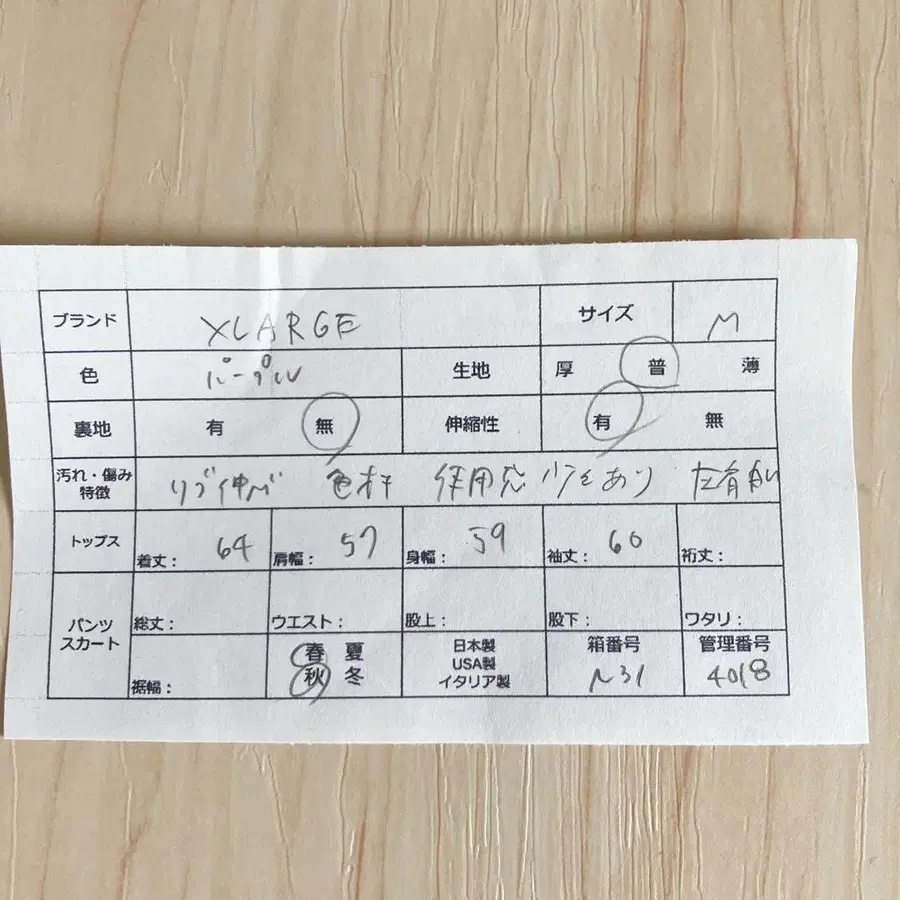 ブランド XLARGE サイズ M
色 パープル 生地 厚 普 薄
裏地 有 無 伸縮性 有 無
汚れ・傷み
特徴 リブ伸び 色 使用感 少々あり
トップス 着丈: 64 肩幅: 57 身幅: 59 袖丈: 60 裄丈:
パンツ
スカート 総丈: ウエスト: 股上: 股下: ワタリ:
裾幅: 春 夏
秋 冬
日本製
USA製
イタリア製
箱番号
N31
管理番号
4018